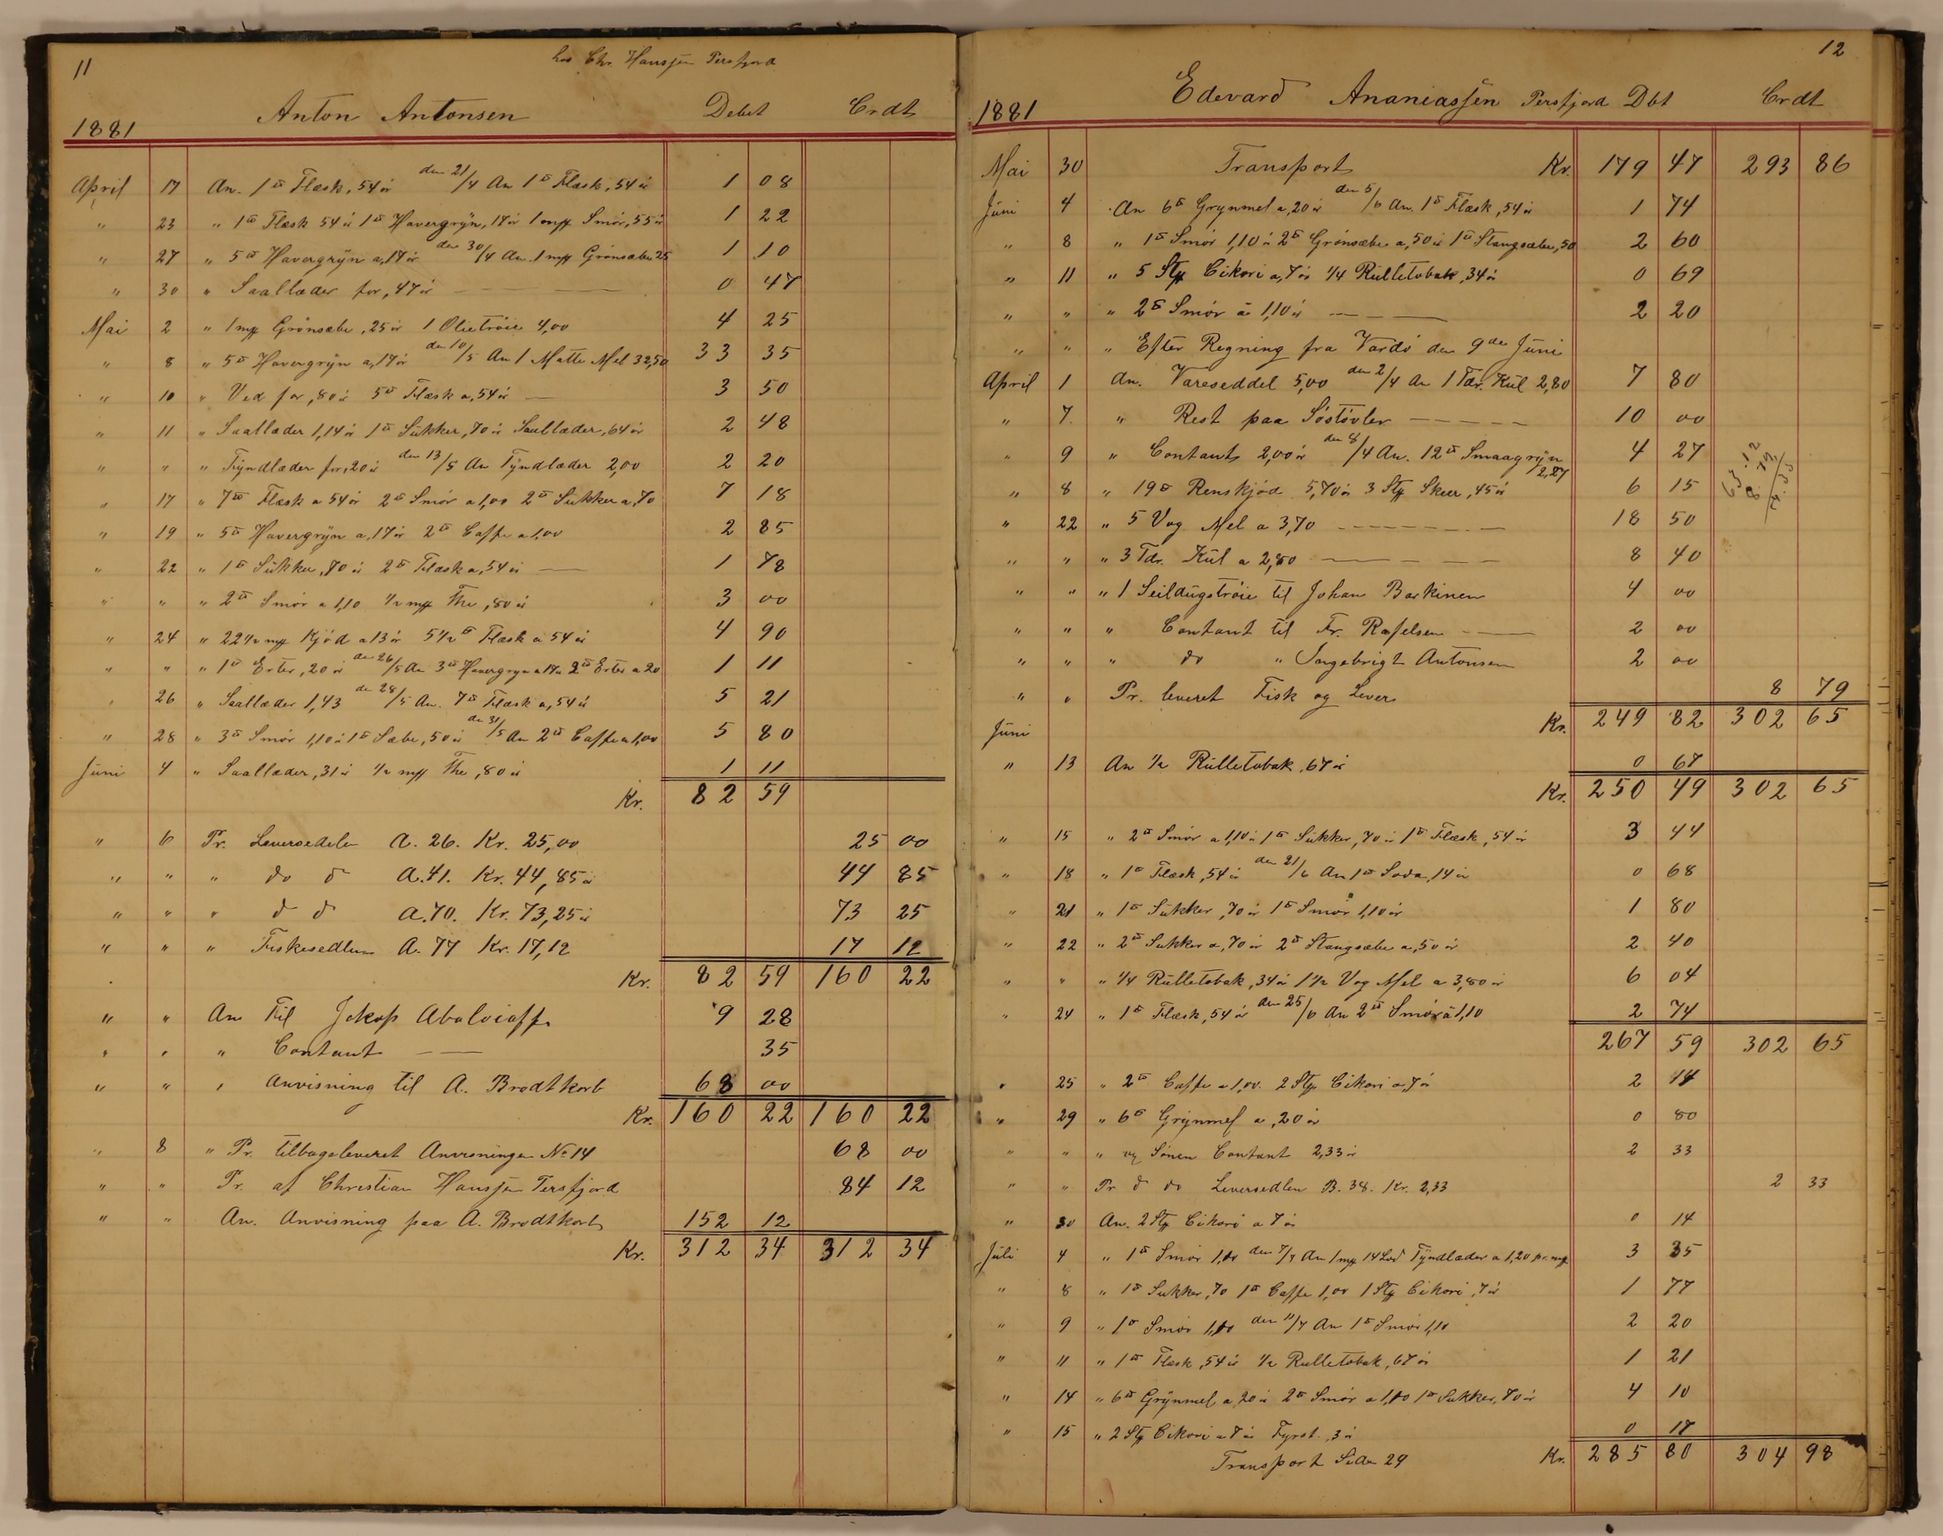 11
hos Chr. Hanssen Persfjord
1881 Anton Antonsen Debet Crdt
April 17 An. 1 ℔ Flæsk, 54 ör den 21/4 An 1 ℔ Flæsk, 54 ör 1 08
" 23 " 1 ℔ Flæsk 54 ör 1 ℔ Havergryn, 17 ör 1 mg Smör, 55 ör 1 22
" 27 " 5 ℔ Havergryn a, 17 ör den 30/4 An. 1 mg Grönsæbe 25 1 10
" 30 " Saallæder for, 47 ör 0 47
Mai 2 " 1 mg Grönsæbe, 25 ör 1 Olietröie 4,00 4 25
" 8 " 5 ℔ Havergryn a, 17 ör den 10/5 An 1 Matte Mel 32,50 33 35
" 10 " Ved for, 80 ör 5 ℔ Flæsk a, 54 ör 3 50
" 11 " Saallæder 1,14 ör 1 ℔ Sukker, 70 ör Saallæder, 64 ör 2 48
" " " Tyndlæder for, 20 ör den 13/5 An Tyndlæder 2,00 2 20
" 17 " 7 ℔ Flæsk a 54 ör 2 ℔ Smör a 1,00 2 ℔ Sukker a, 70 7 18
" 19 " 5 ℔ Havergryn a, 17 ör 2 ℔ Caffe a 1,00 2 85
" 22 " 1 ℔ Sukker, 70 ör 2 ℔ Flæsk a, 54 ör 1 78
" " " 2 ℔ Smör a 1,10 1/2 mg The, 80 ör 3 00
" 24 " 22 1/2 mg Kjöd a 13 ör 5 1/2 ℔ Flæsk a 54 ör 4 90
" " " 1 ℔ Erter, 20 ör den 26/5 An 3 ℔ Havergryn a 17 ör 2 ℔ Erter a 20 1 11
" 26 " Saallæder 1,43 den 28/5 An. 7 ℔ Flæsk a, 54 ör 5 21
" 28 " 3 ℔ Smör 1,10 ör 1 ℔ Sæbe, 50 ör den 31/5 An 2 ℔ Caffe a 1,00 5 80
Juni 4 " Saallæder, 31 ör 1/2 mg The, 80 ör 1 11
Kr. 82 59
" 6 Pr. Leversedeln A. 26. Kr. 25,00 25 00
" " " do d A. 41. Kr. 44,85 ör 44 85
" " " d d A. 70. Kr. 73,25 ör 73 25
" " " Fiskesedlen A. 77 Kr. 17,12 17 12
Kr. 82 59 160 22
" " An Til Jakop 9 28
" " " Contant 35
" " " Anvisning til A. Brodtkorb 68 00
Kr. 160 22 160 22
" 8 " Pr. tilbageleveret Anvisningen No 14 68 00
" " Pr. af Christian Hanssen Persfjord 84 12
" " An. Anvisning paa A. Brodtkorb 152 12
Kr. 312 34 312 34
12
1881 Edevard Ananiassen Persfjord Dbt Crdt
Mai 30 Transport Kr. 179 47 293 86
Juni 4 An 6 ℔ Grynmel a, 20 ör den 5/6 An. 1 ℔ Flæsk, 54 ör 1 74
" 8 " 1 ℔ Smör 1,10 ör 2 ℔ Grönsæbe a, 50 ör 1 ℔ Stangsæbe, 50 2 60
" 11 " 5 Stg Cikori a, 7 ör 1/4 Rulletobak, 34 ör 0 69
" " " 2 ℔ Smör á 1,10 ör 2 20
" " " Efter Regning fra Vardö den 9de Juni
April 1 An. Vareseddel 5,00 den 2/4 An 1 Tdr. Kul 2,80 7 80
" 7. " Rest paa Söstövler 10 00
" 9 " Contant 2,00 ör den 8/4 An. 12 ℔ Smaagryn 2,27 4 27
" 8 " 19 ℔ Renskjöd 5,70 ör 3 Stg Skeer, 45 ör 6 15
" 22 " 5 Vog Mel a 3,70 18 50
" " " 3 Tdr. Kul a 2,80 8 40
" " " 1 Seildugströie til Johan Barkinen 4 00
" " " Contant til Fr. Rafelsen 2 00
" " " do " Ingebrigt Antonsen 2 00
" " Pr. leveret Fisk og Lever 8 79
Juni Kr. 249 82 302 65
" 13 An 1/2 Rulletobak, 67 ör 0 67
Kr. 250 49 302 65
" 15 " 2 ℔ Smör a 1,10 ör 1 ℔ Sukker, 70 ör 1 ℔ Flæsk, 54 ör 3 44
" 18 " 1 ℔ Flæsk, 54 ör den 21/6 An 1 ℔ Soda, 14 ör 0 68
" 21 " 1 ℔ Sukker, 70 ör 1 ℔ Smör 1,10 ör 1 80
" 22 " 2 ℔ Sukker a, 70 ör 2 ℔ Stangsæbe a, 50 ör 2 40
" " " 1/4 Rulletobak, 34 ör 1 1/2 Vog Mel a 3,80 ör 6 04
" 24 " 1 ℔ Flæsk, 54 ör den 25/6 An 2 ℔ Smör á 1,10 2 74
267 59 302 65
" 25 " 2 ℔ Caffe a 1,00. 2 Stg Cikori a, 7 ör 2 14
" 29 " 6 ℔ Grynmel a, 20 ör 0 80
" " " og Sönen Contant 2,33 ör 2 33
" " Pr d do Leversedlen B. 38. Kr. 2,33 2 33
" 30 An. 2 Stg Cikori a 7 ör 0 14
Juli 4 " 1 ℔ Smör 1,10 den 7/7 An 1 mg 14 Lod Tyndlæder a 1,20 pr. mg 3 35
" 8 " 1 ℔ Sukker, 70 1 ℔ Caffe 1,00 1 Stg Cikori, 7 ör 1 77
" 9 " 1 ℔ Smör 1,10 den 11/7 An 1 ℔ Smör 1,10 2 20
" 11 " 1 ℔ Flæsk, 54 ör 1/2 Rulletobak, 67 ör 1 21
" 14 " 6 ℔ Grynmel a, 20 ör 2 ℔ Smör a 1,10 1 ℔ Sukker, 70 ör 4 10
" 15 " 2 Stg Cikori a 7 ör Fyrst. 3 ör 0 17
Transport Siden 29 Kr. 285 80 304 98